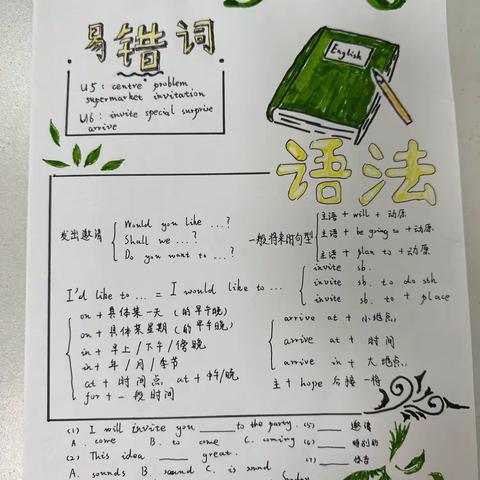 易错词
U5: centre problem
supermarket invitation
U6: invite special surprise
arrive
English
语法
发出邀请
Would you like ...?
Shall we ...?
Do you want to ...?
一般将来时句型
主语 + will + 动原
主语 + be going to + 动原
主语 + plan to + 动原
I'd like to ... = I would like to ...
invite sb.
invite sb. to do sth
invite sb. to + place
on + 具体某一天 (的早午晚)
on + 具体某星期 (的早午晚)
in + 早上/下午/傍晚
in + 年/月/季节
at + 时间点, at + 中午/晚
for + 一段时间
arrive at + 小地点
arrive at + 时间
arrive in + 大地点
主 + hope 后接一将
(1) I will invite you ____ to the party.
A. come B. to come C. coming
(2) This idea ____ great.
A. sounds B. sound C. is sound
(5) ____ 邀请
(6) ____ 特别的
(7) ____ 惊喜